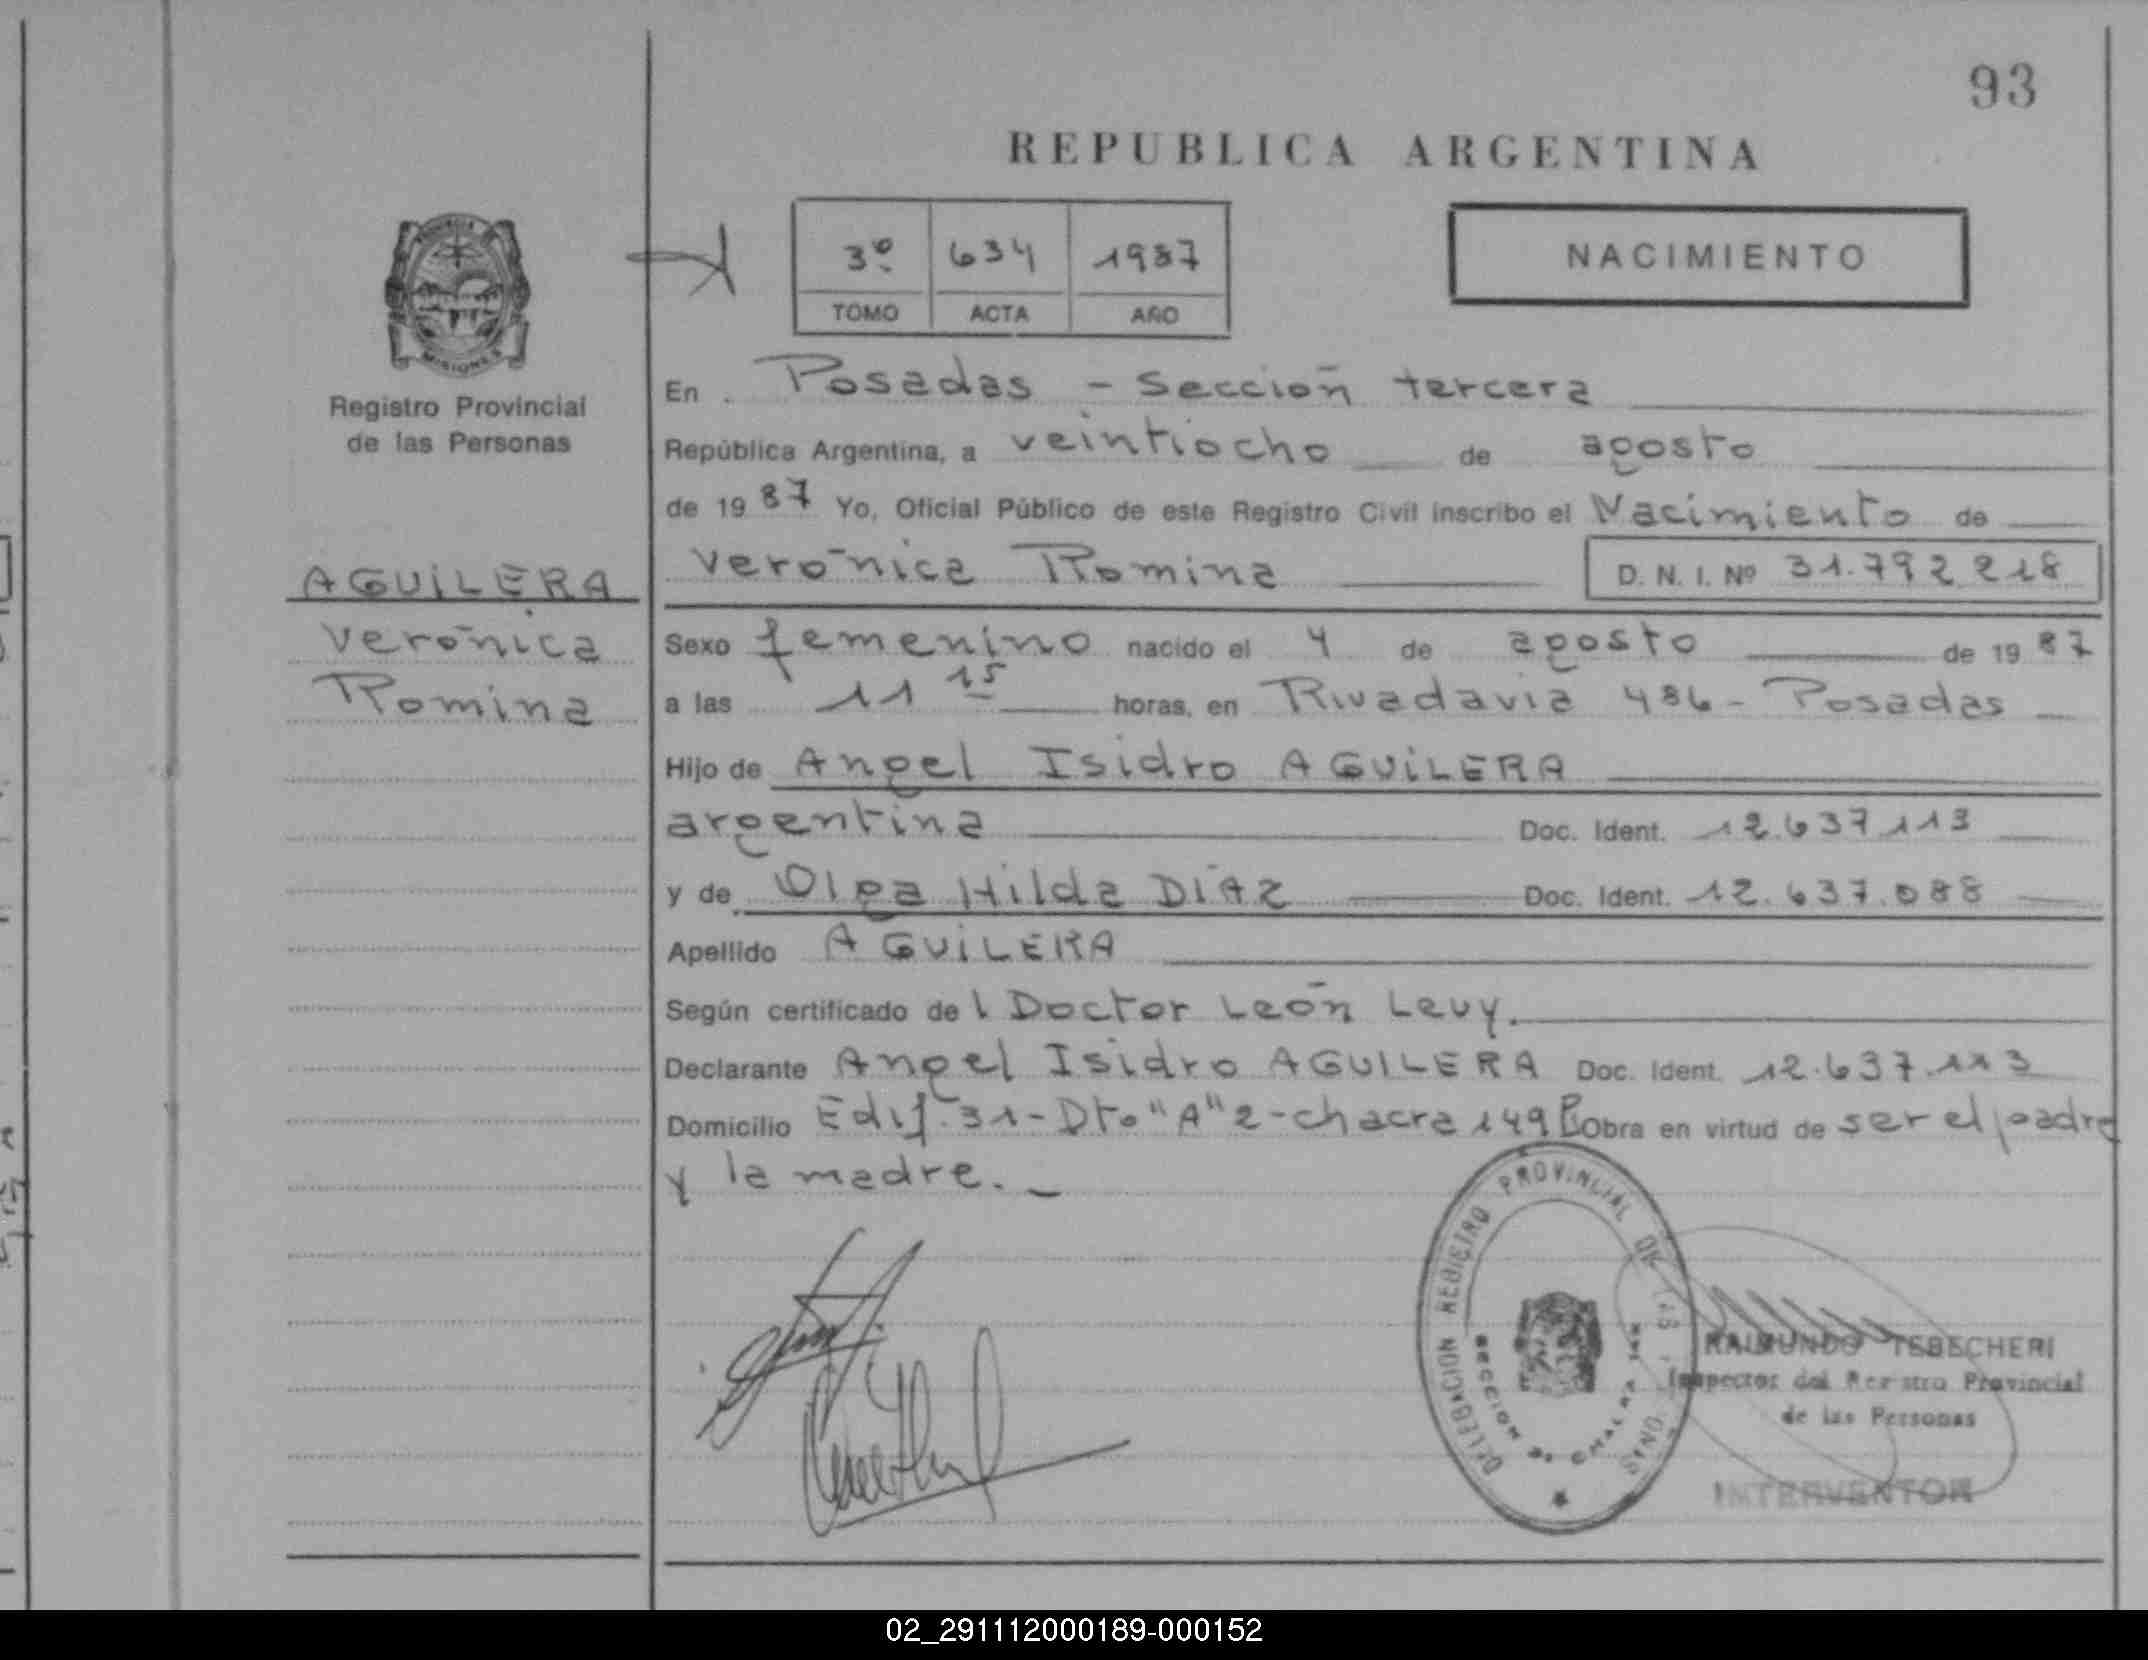 93
REPUBLICA ARGENTINA
3º 634 1987
TOMO ACTA AÑO
NACIMIENTO
PROVINCIA
MISIONES
Registro Provincial
de las Personas
AGUILERA
Verónica
Romina
En Posadas - Sección tercera
República Argentina, a veintiocho de agosto
de 19 87 Yo, Oficial Público de este Registro Civil inscribo el Nacimiento de
Verónica Romina D. N. I. Nº 31.792.218
Sexo femenino nacido el 4 de agosto de 19 87
a las 11 15 horas, en Rivadavia 486 - Posadas
Hijo de Angel Isidro AGUILERA
argentina Doc. Ident. 12.637.113
y de Olga Hilda DÍAZ Doc. Ident. 12.637.088
Apellido AGUILERA
Según certificado de l Doctor León Levy.
Declarante Angel Isidro AGUILERA Doc. Ident. 12.637.113
Domicilio Edif. 31 - Dto "A" 2 - chacra 149 P. Obra en virtud de ser el padre
y la madre. _
DELEGACION REGISTRO PROVINCIAL DE LAS
SECCION
RAIMUNDO TEBECHERI
Inspector del Registro Provincial
de las Personas
INTERVENTOR
02_291112000189-000152